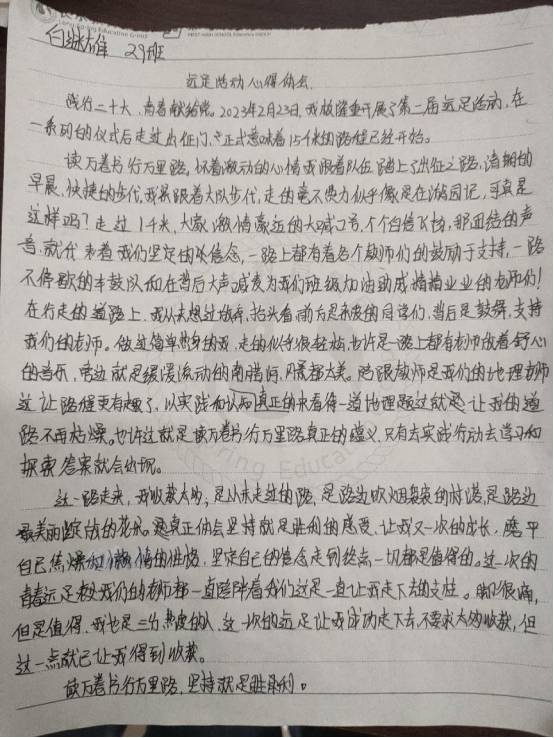 白继雄 29班
远足活动心得体会
践行二十大，青春献给党。2023年2月23日，我校隆重开展了第二届远足活动，在
一系列的仪式后走过出征门，正式意味着15千米的路程已经开始。
读万卷书行万里路，怀着激动的心情我跟着队伍踏上了出征之路，清朝的
早晨，快捷的步伐，我紧跟着大队步伐，走的毫不费力似乎像是在游园记，可真是
这样吗？走过1千米，大家激情豪迈的大喊口号，个个自信飞扬，那团结的声
音，就代表着我们坚定的信念，一路上都有着各个教师们的鼓励于支持，一路
不停歇的丰鼓队和在背后大声喊麦为我们班级加油助威精精业业的老师们！
在行走的道路上，我从未想过放弃，抬头看前方是亲皮的同学们，背后是鼓舞，支持
我们的老师。做过简单热身的我，走的似乎很轻松，也许是一路上都有老师放着舒心
的音乐，旁边就是缓缓流动的南腊河，风景都大美。陪跟教师是我们的地理老师
这让路程更有趣了，以实践和认知真正的来看待一道地理题过就是让我的道
路不再枯燥。也许这就是读万卷书行万里路真正的意义，只有去实践行动去学习和
探索答案就会出现。
这一路走来，我收获太多，是从未走过的路，是路边吹烟袅袅的村落，是路边
最美丽绽放的花朵。是真正体会坚持就是胜利的感受，让我又一次的成长，磨平
自己焦燥和懒惰的性格，坚定自己的信念走到终点一切都是值得的。这一次的
青春远足教我们的老师都一直陪伴着我们这是一直让我走下去的支柱。脚很痛，
但是值得，我也是三分热度的人，这一次的远足让我成功走下去，不要求太多收获，但
这一点就已让我得到收获。
读万卷书行万里路，坚持就是胜利。